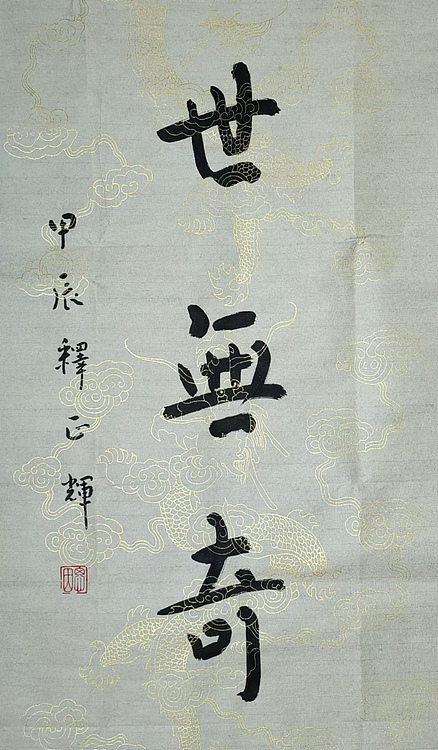 世無奇
甲辰釋正輝